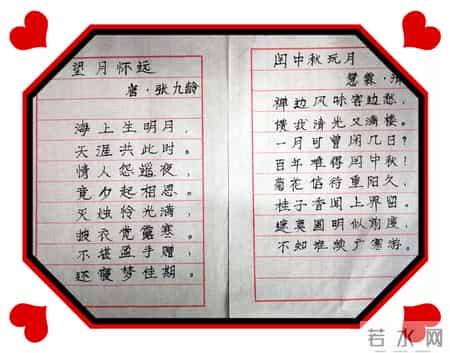 望月怀远
唐·张九龄
海上生明月，
天涯共此时。
情人怨遥夜，
竟夕起相思。
灭烛怜光满，
披衣觉露寒。
不堪盈手赠，
还寝梦佳期。
闰中秋玩月
慧霖·清
禅边风味客边愁，
馈我清光又满楼。
一月可曾闲几日？
百年难得闰中秋！
菊花信待重阳久，
桂子香闻上界留。
遮莫圆明似前度，
不知谁续广寒游。
若水网